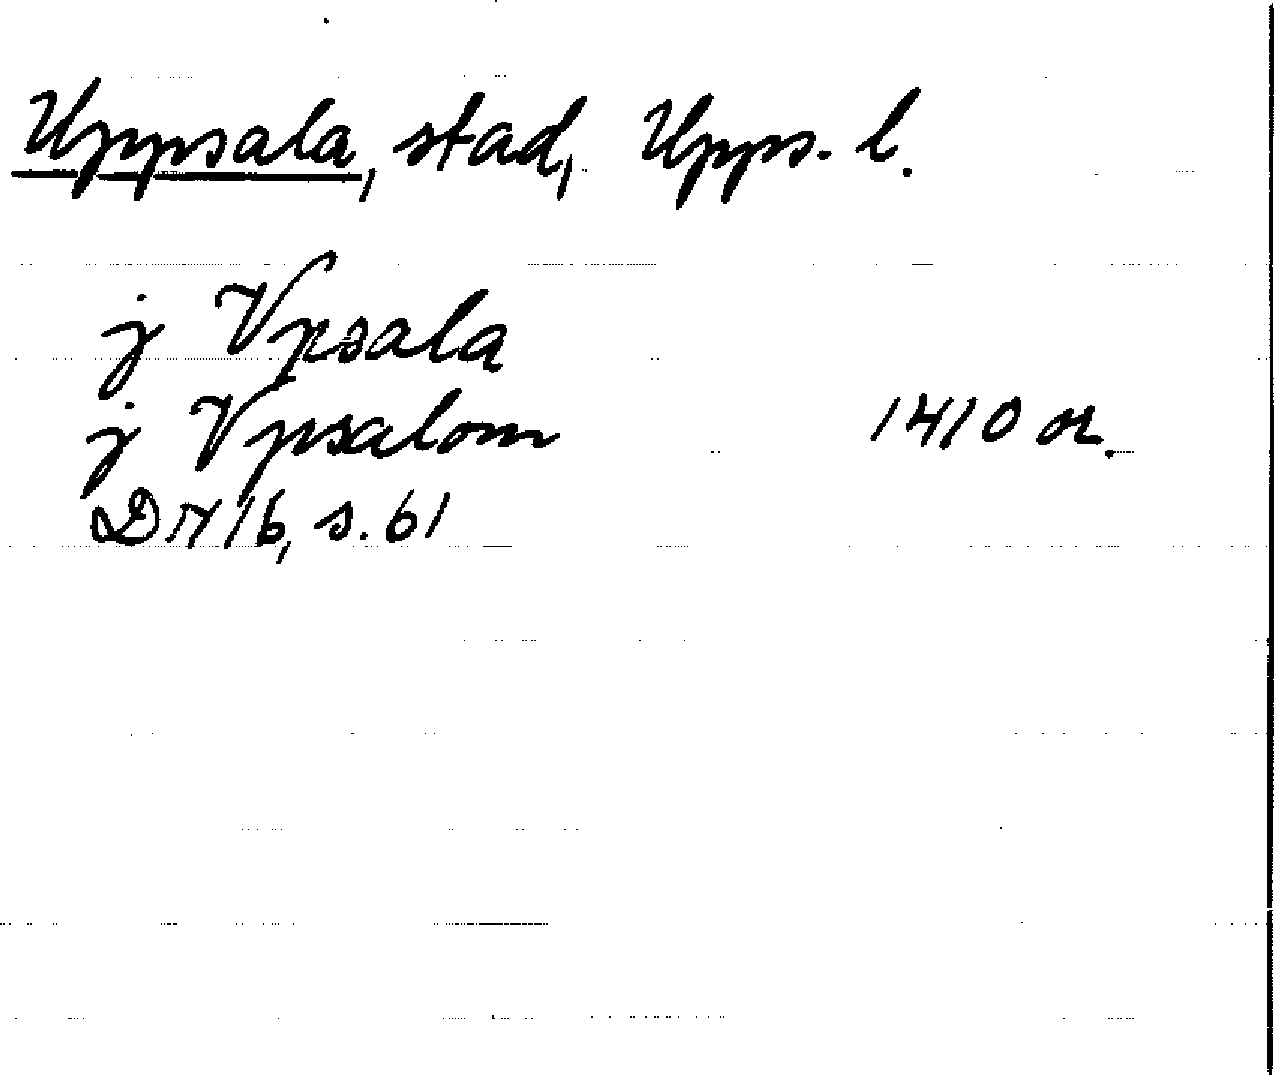 Uppsala, stad, Upps. l.
j Vpsala
j Vpsalom 1410 or.
D 17 16, s. 61